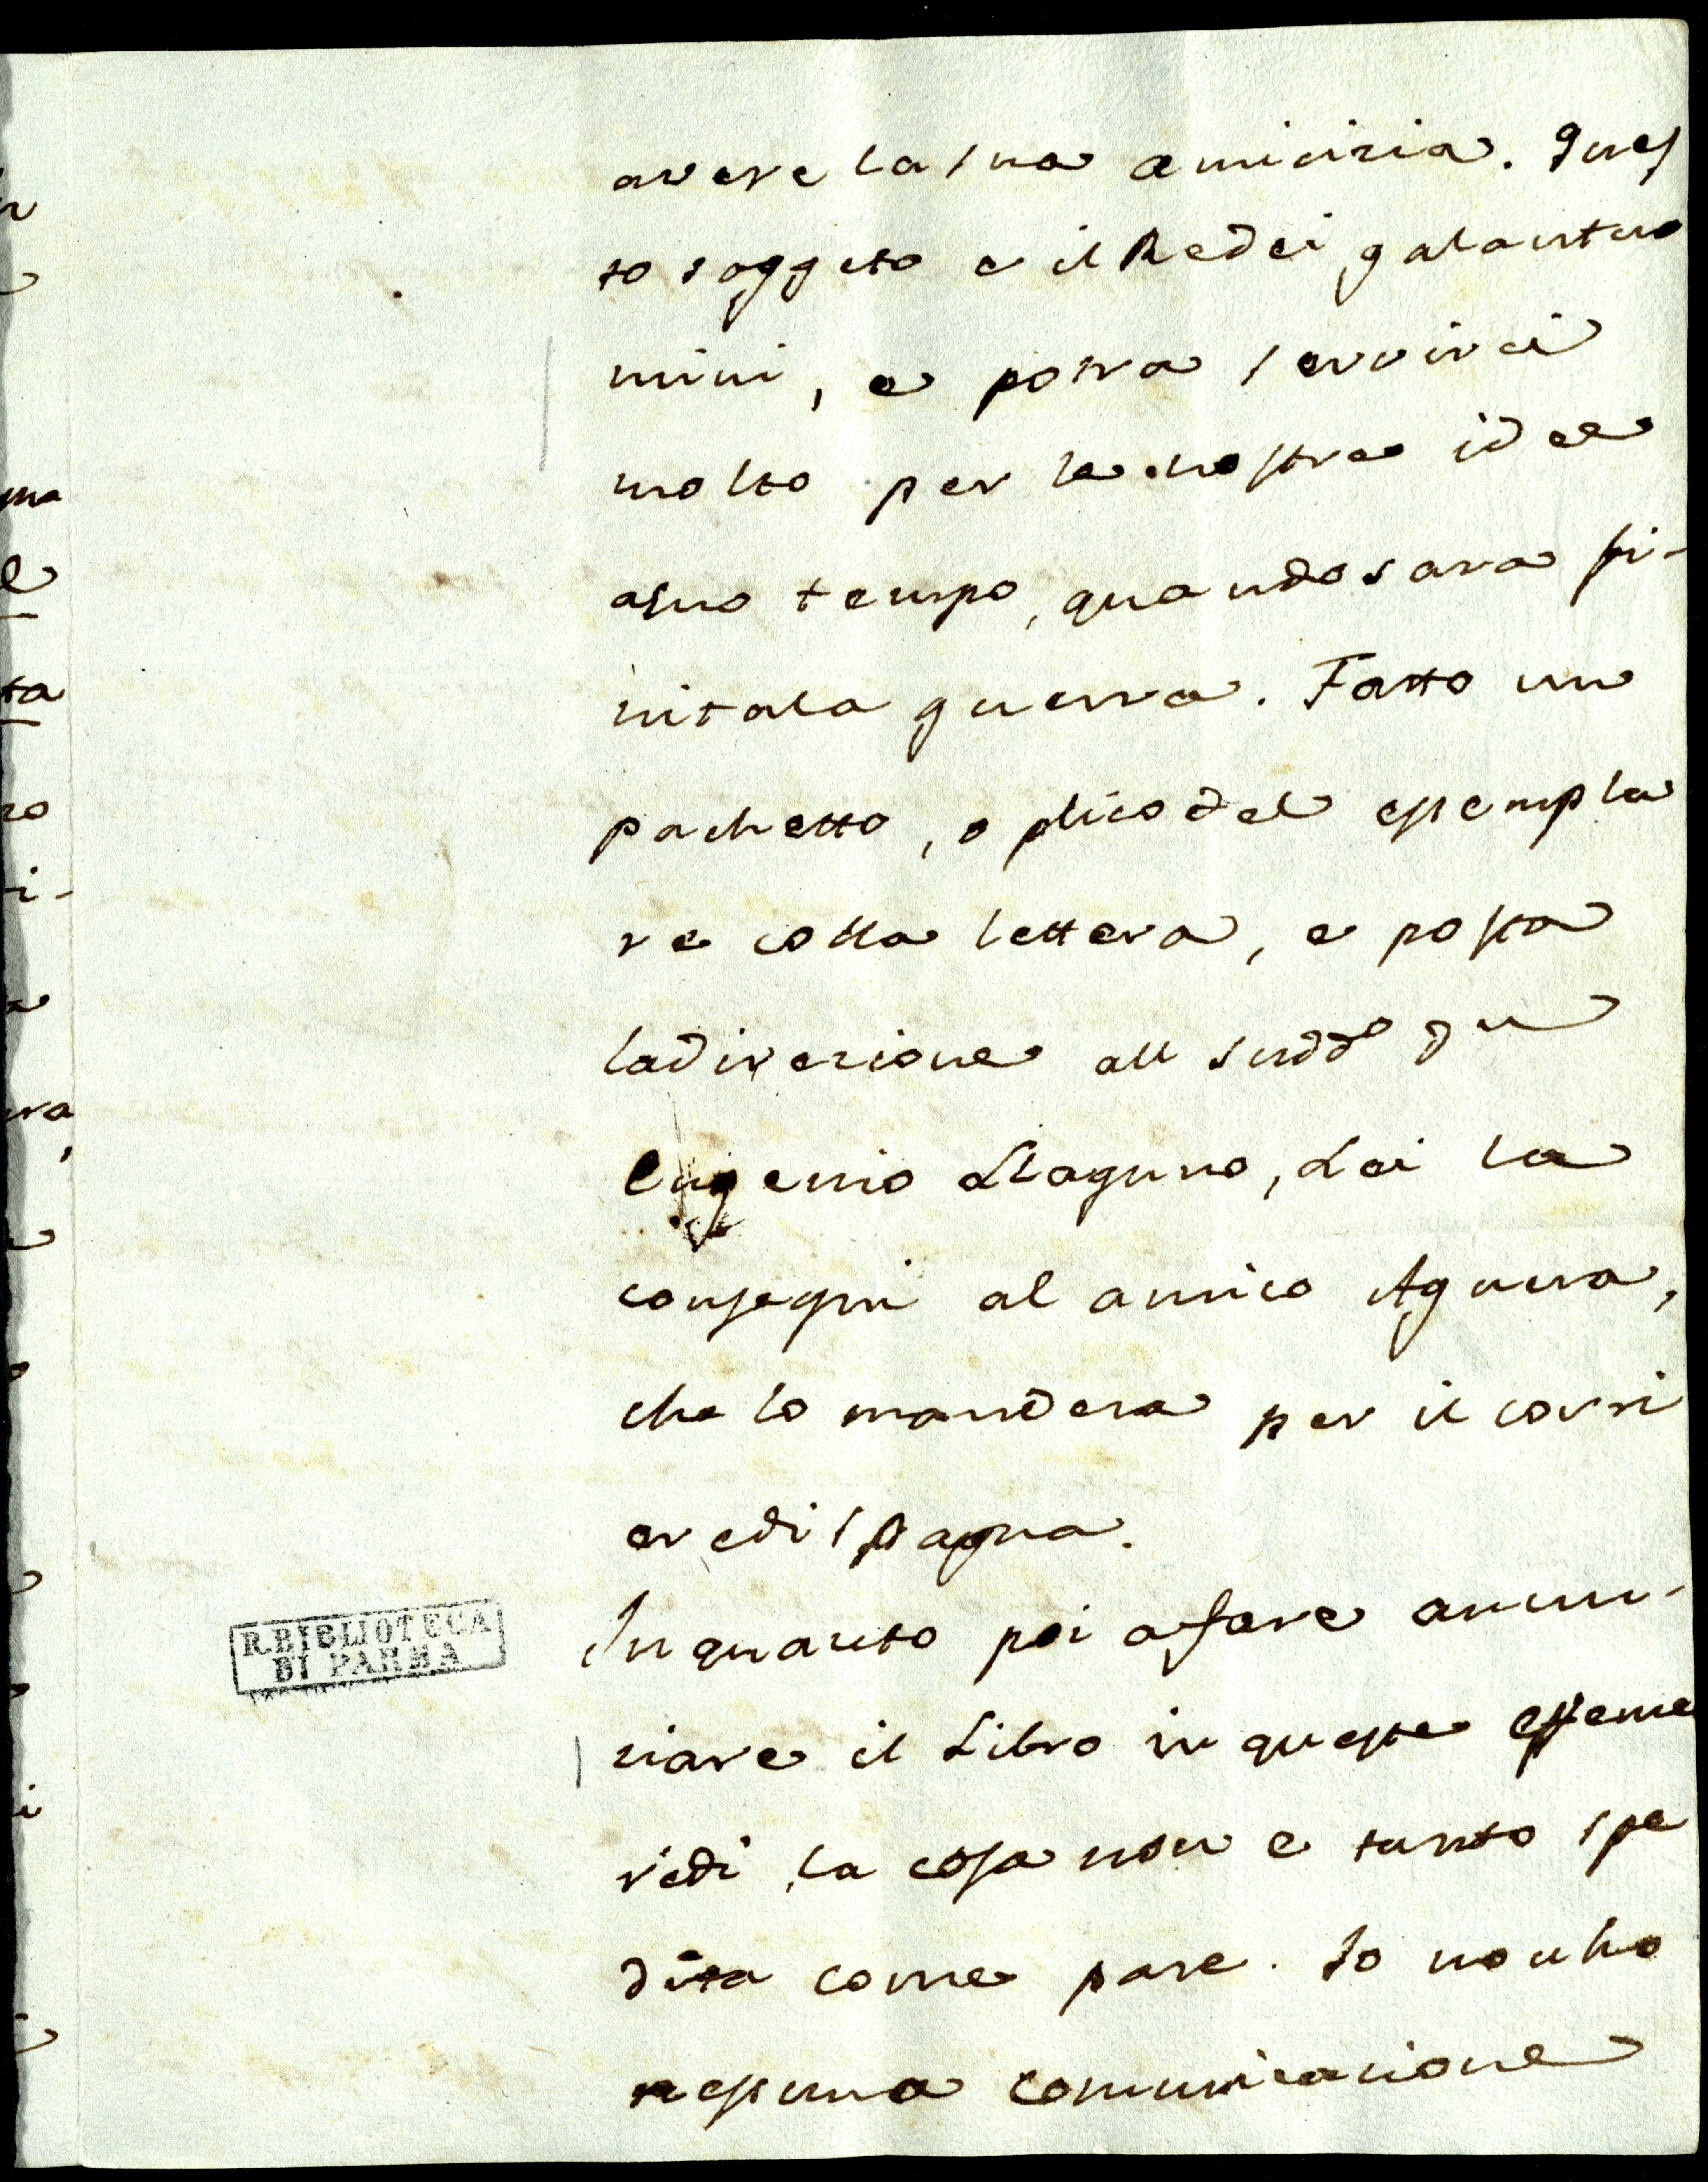 avere la sua amicizia. Ques
to soggeto e il Re dei galantuo
mini, e potra servirci
molto per le nostre idee
a suo tempo, quando sara fi-
nita la guerra. Fatto un
pachetto, o plico del essempla
re colla lettera, e posta
la direzione all sudd.º Dn
Eugenio Llaguno, Lei la
consegni al amico Aguera,
che lo mandera per il corri
ere di Spagna.
In quanto poi a fare anun-
ziare il Libro in queste effeme
ridi, la cosa non e tanto spe
dita come pare. Io non ho
nessuna comunicazione
R. BIBLIOTECA
DI PARMA